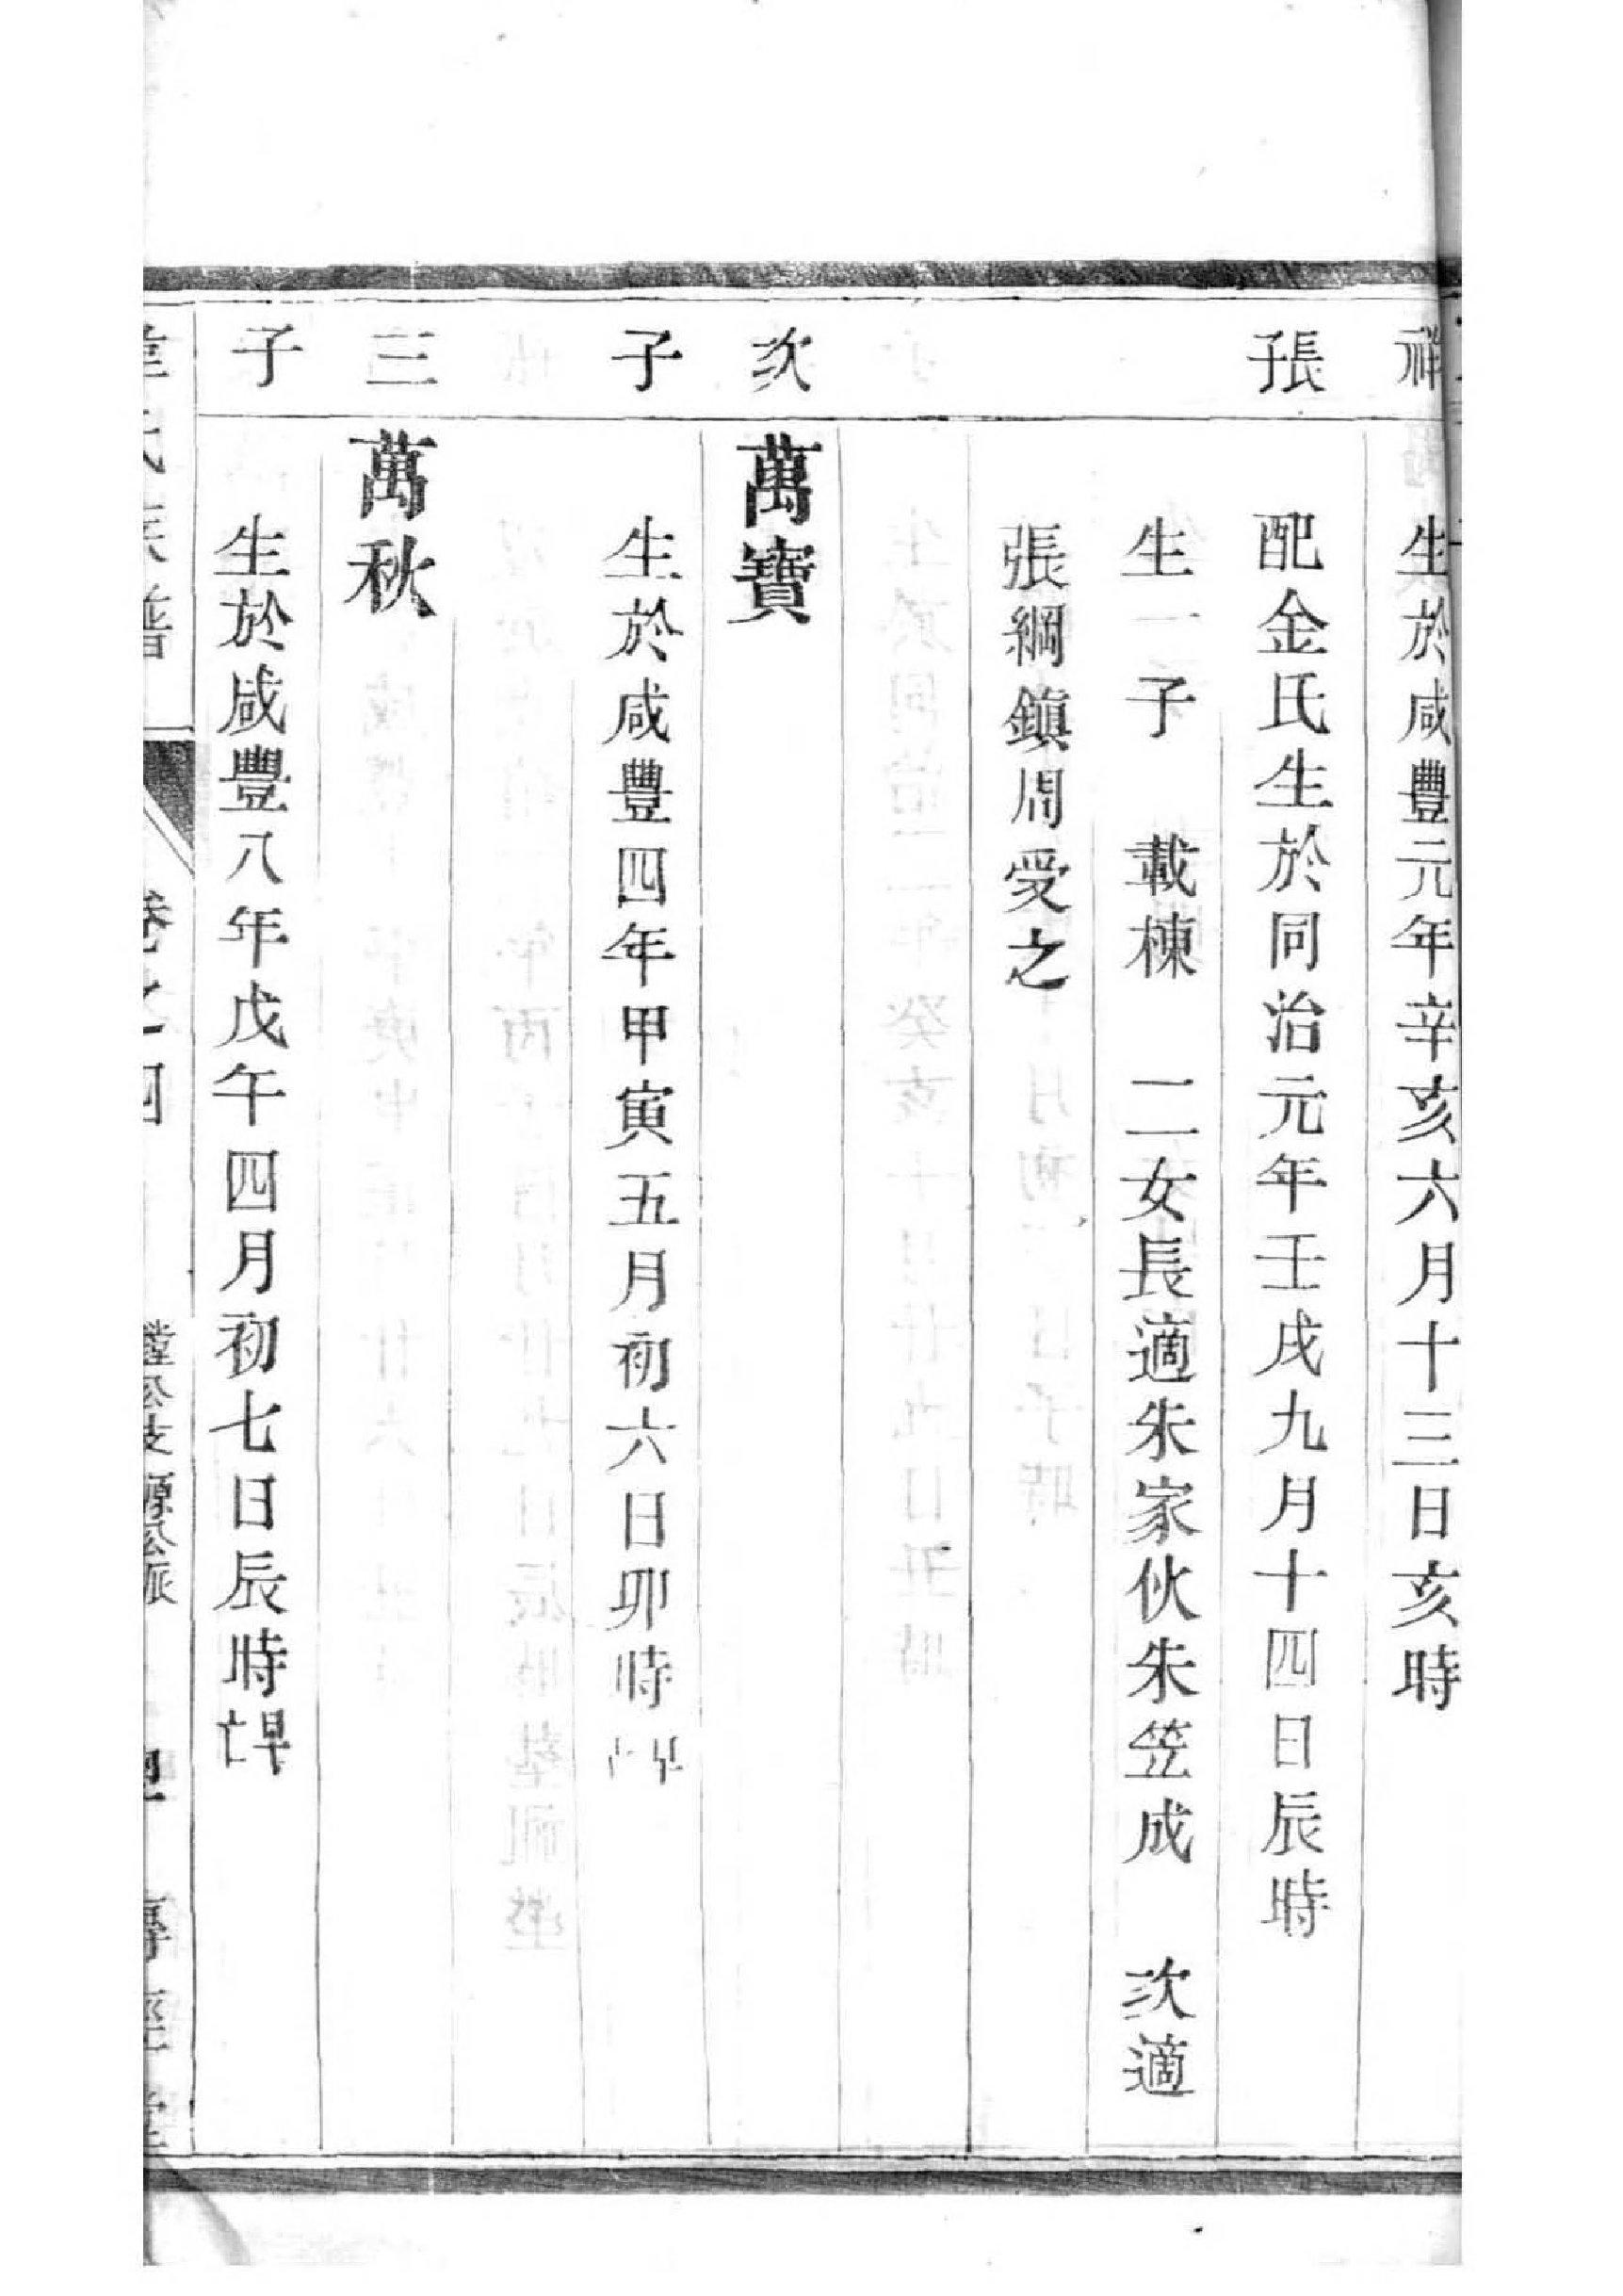 祥
生於咸豐元年辛亥六月十三日亥時
張子
配金氏生於同治元年壬戌九月十四日辰時
生一子 載棟 二女長適朱家伙朱笠成 次適
張綱鎭周受之
次 萬寶
子 生於咸豐四年甲寅五月初六日卯時
三 萬秋
子 生於咸豐八年戊午四月初七日辰時早亡
氏族譜 卷之四 公支源公派